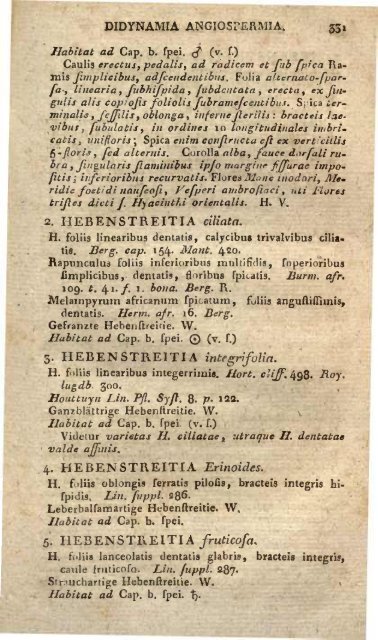 DIDYNAMIA ANGIOSPERMIA. 331
Habitat ad Cap. b. ſpei. ♂ (v. ſ.)
Caulis erectus, pedalis, ad radicem et ſub ſpica Ra-
mis ſimplicibus, adſcendentibus. Folia alternato-ſpar-
ſa, linearia, ſubhiſpida, ſubdentata, erecta, ex ſin-
gulis alis copioſis foliolis ſubrameſcentibus. Spica ter-
minalis, ſeſſilis, oblonga, inferne ſterilis: bracteis lae-
vibus, ſubulatis, in ordines 10 longitudinales imbri-
catis, unifloris; Spica enim conſtructa eſt ex verticillis
5-floris, ſed alternis. Corolla alba, fauce dorſali ru-
bra, ſingularis ſtaminibus ipſo margine fiſſurae impo-
ſitis; inferioribus recurvatis. Flores Mane inodori, Me-
ridie foetidi nauſeoſi, Veſperi ambroſiaci, uti Flores
triſtes dicti ſ. Hyacinthi orientalis. H. V.
2. HEBENSTREITIA ciliata.
H. foliis linearibus dentatis, calycibus trivalvibus cilia-
tis. Berg. cap. 154. Mant. 420.
Rapunculus foliis inferioribus multifidis, ſuperioribus
ſimplicibus, dentatis, floribus ſpicatis. Burm. afr.
109. t. 41. f. 1. bona. Berg. R.
Melampyrum africanum ſpicatum, foliis anguſtiſſimis,
dentatis. Herm. afr. 16. Berg.
Gefranzte Hebenſtreitie. W.
Habitat ad Cap. b. ſpei. ☉ (v. ſ.)
3. HEBENSTREITIA integrifolia.
H. foliis linearibus integerrimis. Hort. cliff. 498. Roy.
lugdb. 300.
Houttuyn Lin. Pfl. Syſt. 8. p. 122.
Ganzblättrige Hebenſtreitie. W.
Habitat ad Cap. b. ſpei. (v. ſ.)
Videtur varietas H. ciliatae, utraque H. dentatae
valde affinis.
4. HEBENSTREITIA Erinoides.
H. foliis oblongis ſerratis piloſis, bracteis integris hi-
ſpidis. Lin. ſuppl. 286.
Leberbalſamartige Hebenſtreitie. W.
Habitat ad Cap. b. ſpei.
5. HEBENSTREITIA fruticoſa.
H. foliis lanceolatis dentatis glabris, bracteis integris,
caule fruticoſo. Lin. ſuppl. 287.
Strauchartige Hebenſtreitie. W.
Habitat ad Cap. b. ſpei. ♄.